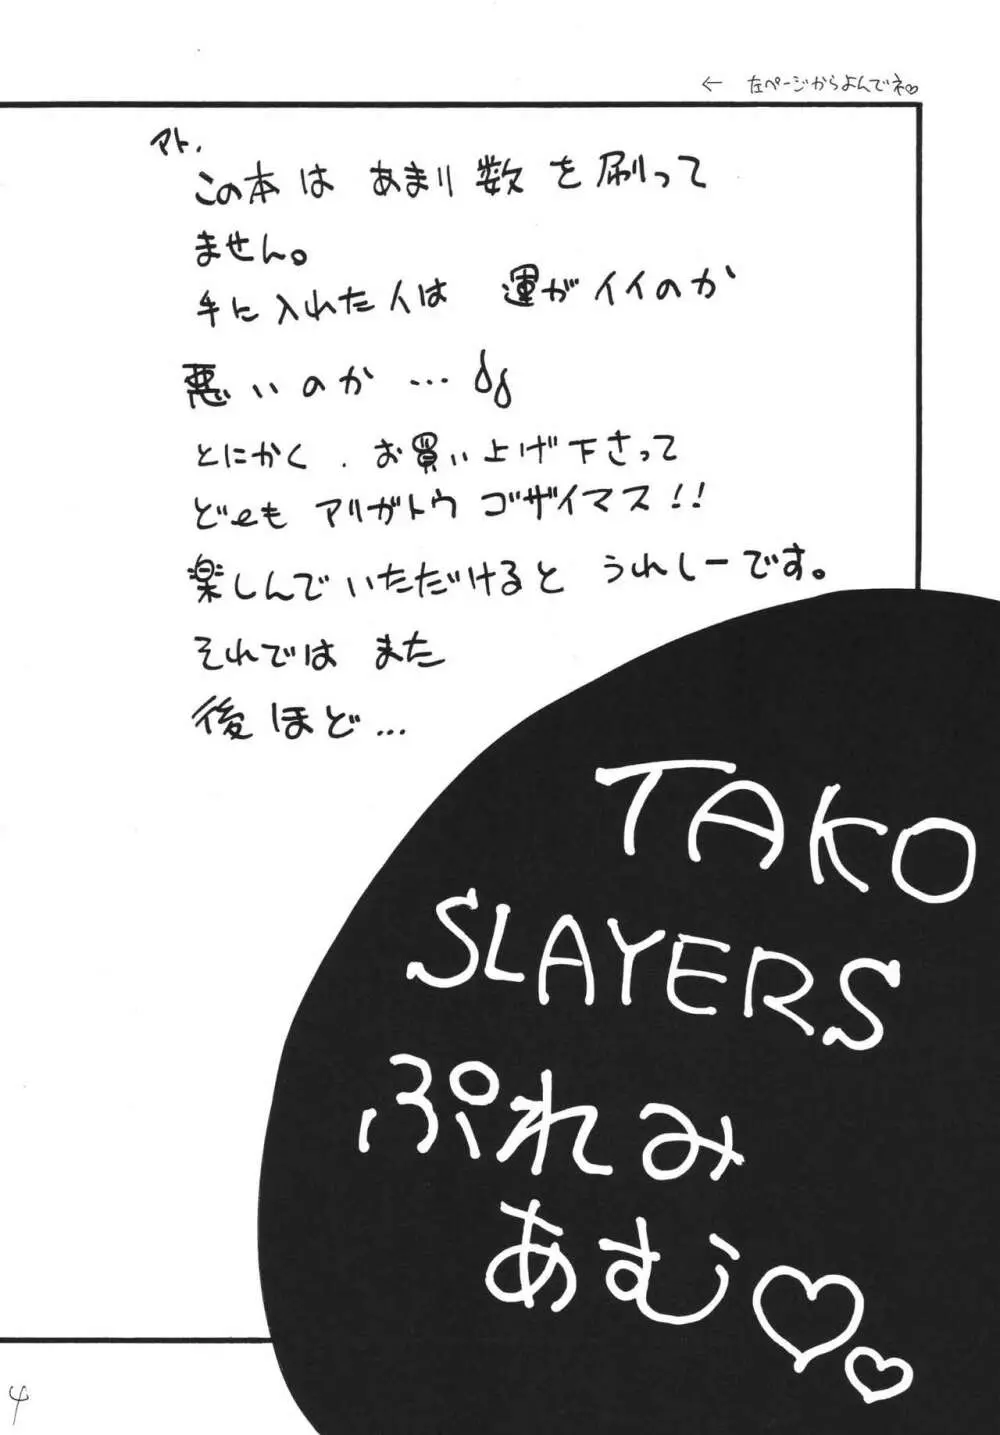 ← 左ページからよんでネ♡
アト.
この本は あまり数を刷って
ません。
手に入れた人は 運がイイのか
悪いのか …
とにかく . お買い上げ下さって
どーも アリガトウ ゴザイマス!!
楽しんでいただけると うれしーです。
それでは また
後ほど…
TAKO
SLAYERS
ぷれみ
あむ♡♡
4